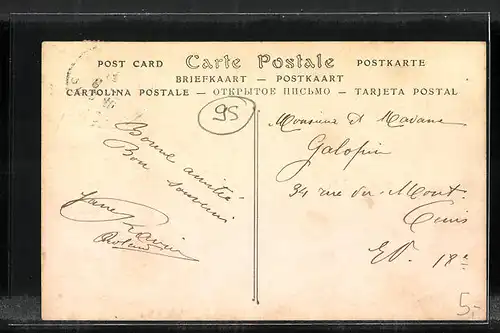 POST CARD Carte Postale POSTKARTE
BRIEFKAART — POSTKAART
CARTOLINA POSTALE — ОТКРЫТОЕ ПИСЬМО — TARJETA POSTAL
95
Bonne amitié
Bon souvenir
Monsieur et Madame
Galopin
34 rue du Mont
Cenis
E.V. 18e
5,-